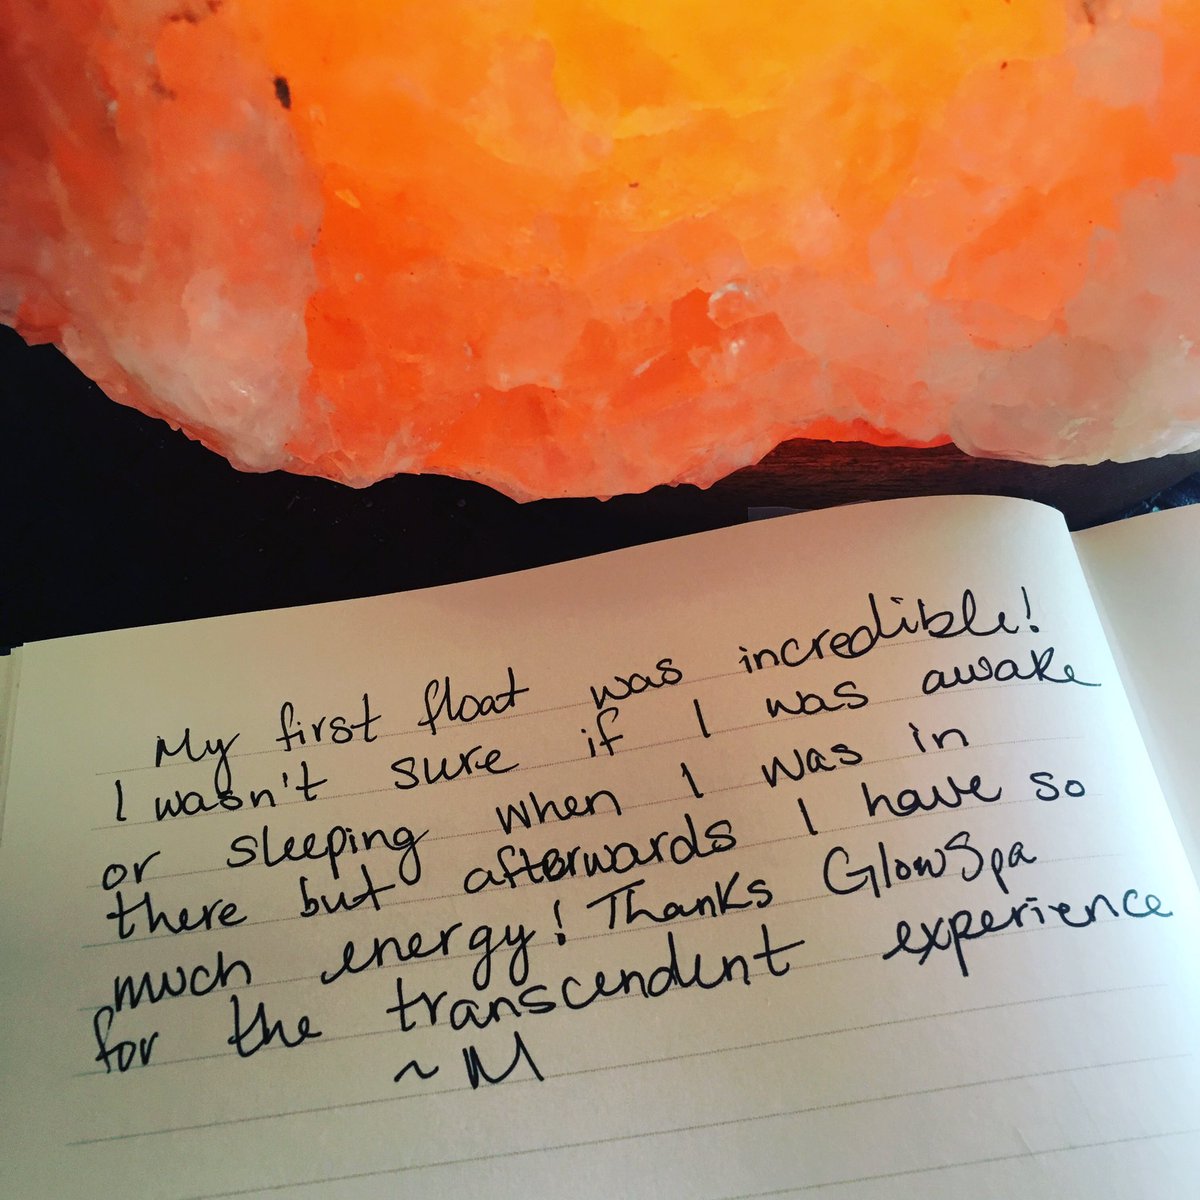 My first float was incredible!
I wasn't sure if I was awake
or sleeping when I was in
there but afterwards I have so
much energy! Thanks GlowSpa
for the transcendent experience
~ M